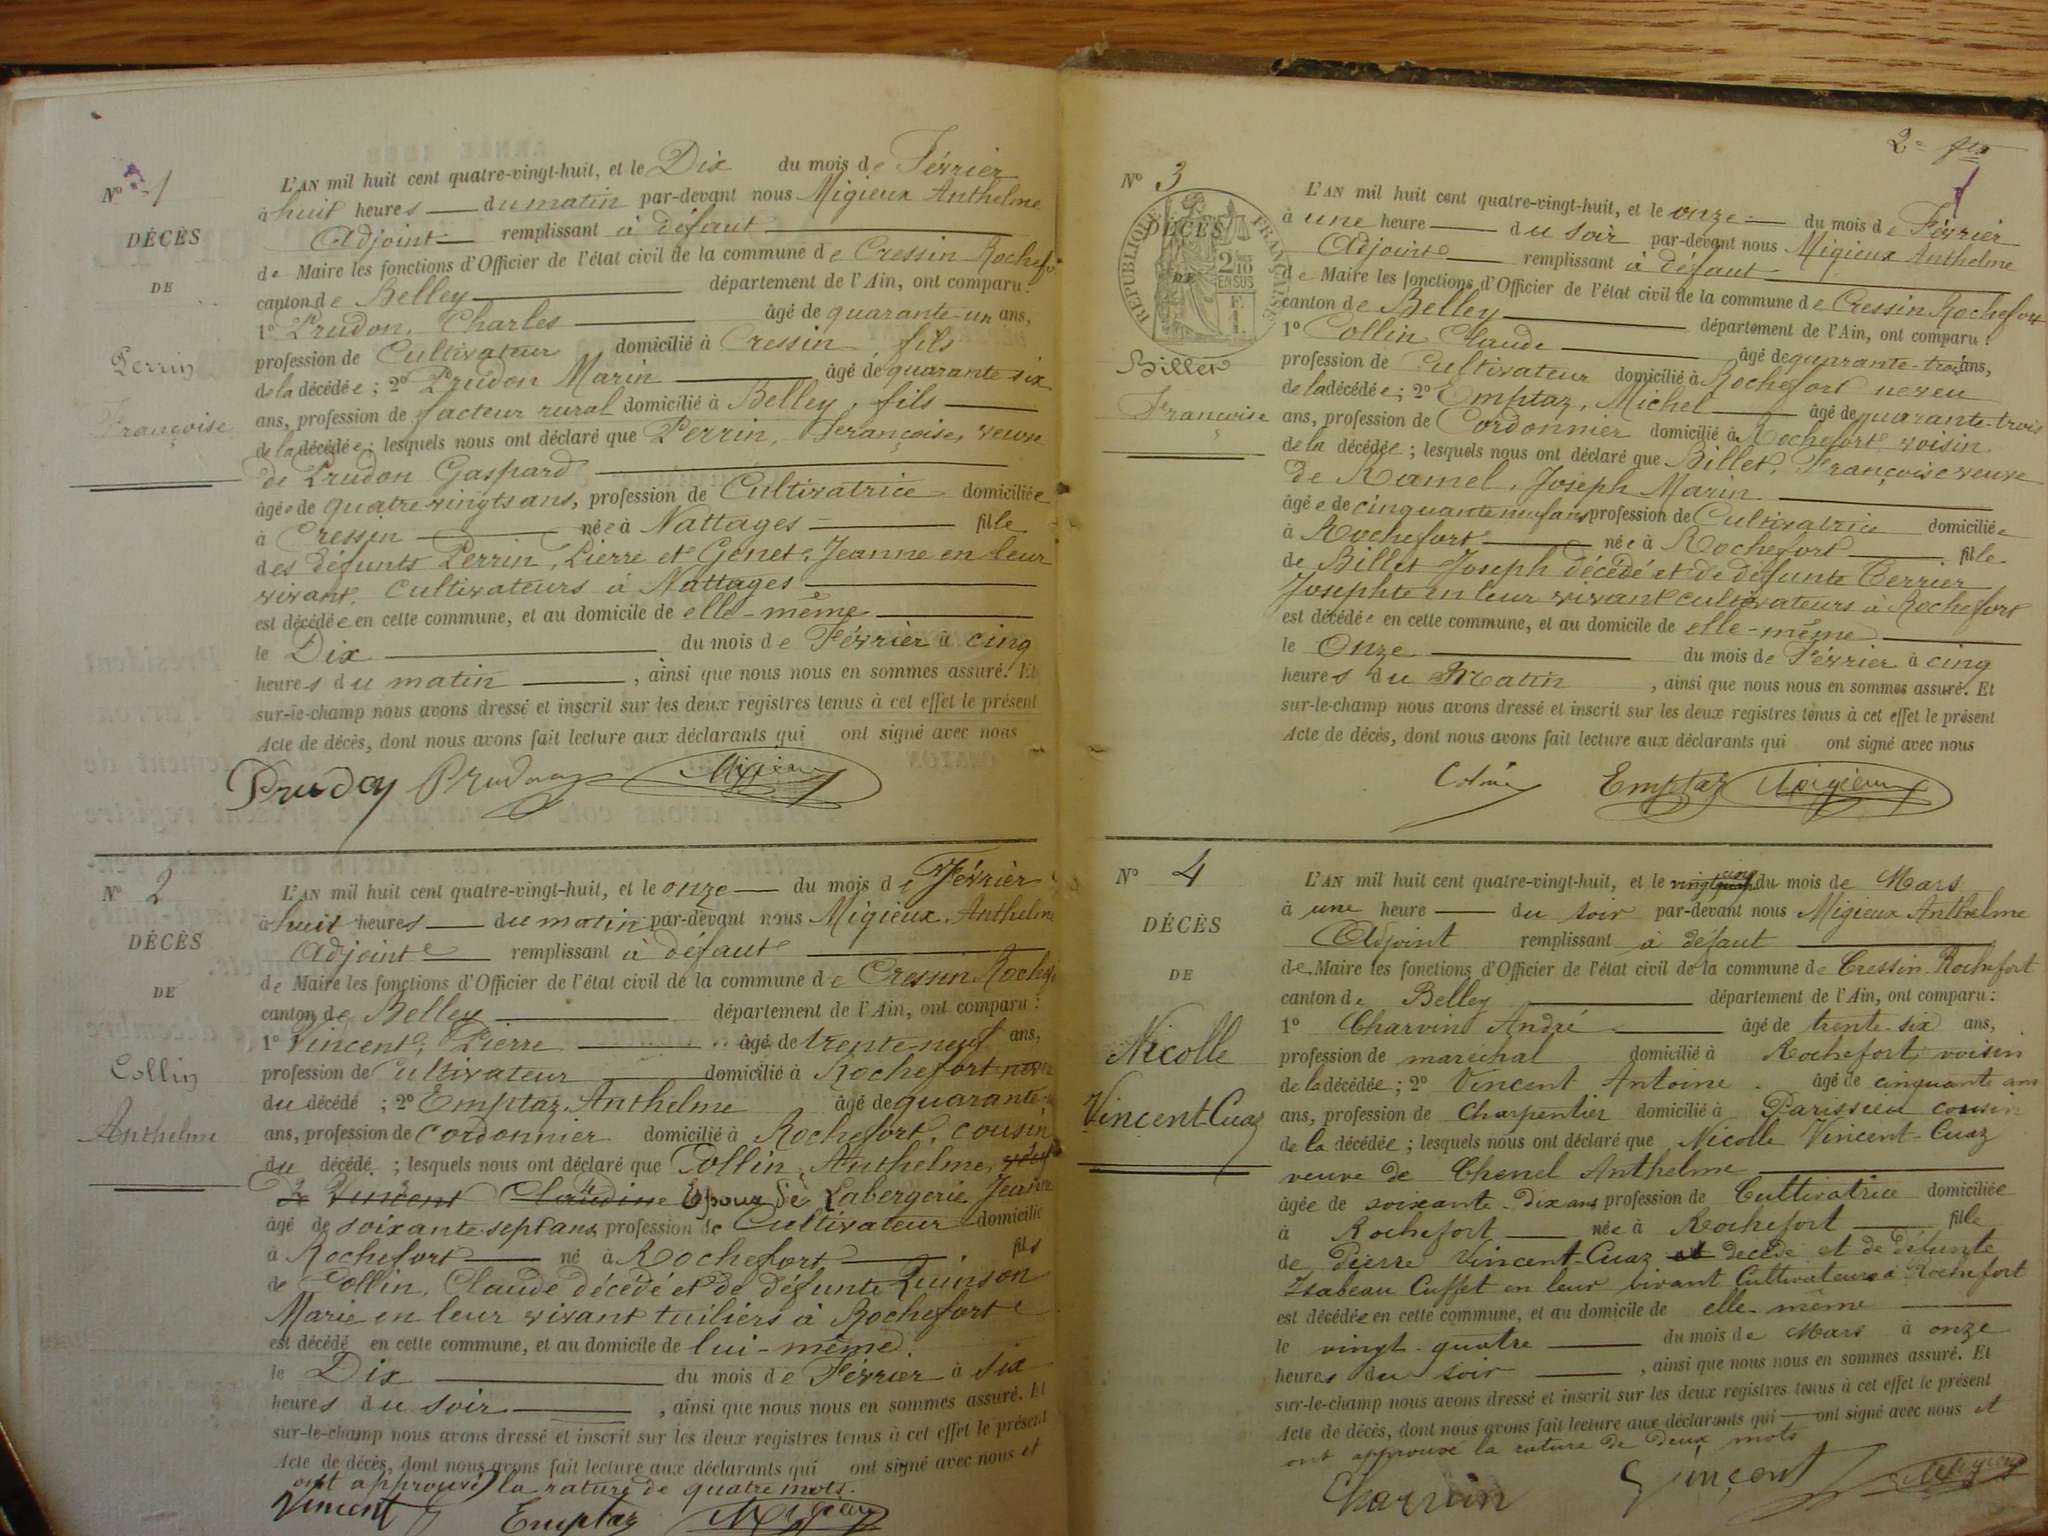 Nº 1
DÉCÈS
DE
Perrin
Françoise
L'AN mil huit cent quatre-vingt-huit, et le Dix du mois de Février
à huit heures du matin par-devant nous Migieux Anthelme
Adjoint remplissant à défaut
de Maire les fonctions d'Officier de l'état civil de la commune de Cressin Rochef
canton de Belley département de l'Ain, ont comparu :
1º Prudon, Charles âgé de quarante-un ans,
profession de Cultivateur domicilié à Cressin fils
de la décédée ; 2º Prudon Marin âgé de quarante six
ans, profession de facteur rural domicilié à Belley, fils
de la décédée ; lesquels nous ont déclaré que Perrin, Françoise, veuve
de Prudon Gaspard
âgée de quatre-vingts ans, profession de Cultivatrice domiciliée
à Cressin née à Nattages fille
des défunts Perrin, Pierre et Genet, Jeanne en leur
vivant, cultivateurs à Nattages
est décédée en cette commune, et au domicile de elle-même
le Dix du mois de Février à cinq
heures du matin , ainsi que nous nous en sommes assuré. Et
sur-le-champ nous avons dressé et inscrit sur les deux registres tenus à cet effet le présent
Acte de décès, dont nous avons fait lecture aux déclarants qui ont signé avec nous
Prudon Prudon Migieux
Nº 2
DÉCÈS
DE
Collin
Anthelme
L'AN mil huit cent quatre-vingt-huit, et le onze du mois de Février
à huit heures du matin par-devant nous Migieux, Anthelme
Adjoint remplissant à défaut
de Maire les fonctions d'Officier de l'état civil de la commune de Cressin Rochef
canton de Belley département de l'Ain, ont comparu :
1º Vincent, Pierre âgé de trente-neuf ans,
profession de Cultivateur domicilié à Rochefort
du décédé ; 2º Emptaz, Anthelme âgé de quarante
ans, profession de cordonnier domicilié à Rochefort, cousin
du décédé ; lesquels nous ont déclaré que Collin, Anthelme,
de Vincent Claudine Epoux de Labergerie Jeanne
âgé de soixante-sept ans, profession de Cultivateur domicilié
à Rochefort né à Rochefort fils
de Collin, Claude décédé et de défunte Quinson
Marie en leur vivant tuiliers à Rochefort
est décédé en cette commune, et au domicile de lui-même
le Dix du mois de Février à six
heures du soir , ainsi que nous nous en sommes assuré. Et
sur-le-champ nous avons dressé et inscrit sur les deux registres tenus à cet effet le présent
Acte de décès, dont nous avons fait lecture aux déclarants qui ont signé avec nous et
ont approuvé la rature de quatre mots.
Vincent Emptaz Migieux
2e
Nº 3
DÉCÈS
DE
RÉPUBLIQUE FRANÇAISE
2/10 EN SUS
Billet
Françoise
L'AN mil huit cent quatre-vingt-huit, et le onze du mois de Février
à une heure du soir par-devant nous Migieux Anthelme
Adjoint remplissant à défaut
de Maire les fonctions d'Officier de l'état civil de la commune de Cressin Rochefort
canton de Belley département de l'Ain, ont comparu :
1º Collin Claude âgé de quarante-trois ans,
profession de Cultivateur domicilié à Rochefort neveu
de la décédée ; 2º Emptaz, Michel âgé de quarante-trois
ans, profession de Cordonnier domicilié à Rochefort, voisin
de la décédée ; lesquels nous ont déclaré que Billet, Françoise veuve
de Ramel, Joseph Marin
âgée de cinquante neuf ans profession de Cultivatrice domiciliée
à Rochefort née à Rochefort fille
de Billet Joseph décédé et de défunte Terrier
Josephte en leur vivant cultivateurs à Rochefort
est décédée en cette commune, et au domicile de elle-même
le Onze du mois de Février à cinq
heures du Matin , ainsi que nous nous en sommes assuré. Et
sur-le-champ nous avons dressé et inscrit sur les deux registres tenus à cet effet le présent
Acte de décès, dont nous avons fait lecture aux déclarants qui ont signé avec nous
Emptaz Migieux
Nº 4
DÉCÈS
DE
Nicolle
Vincent-Cuaz
L'AN mil huit cent quatre-vingt-huit, et le vingt cinq du mois de Mars
à une heure du soir par-devant nous Migieux Anthelme
Adjoint remplissant à défaut
de Maire les fonctions d'Officier de l'état civil de la commune de Cressin-Rochefort
canton de Belley département de l'Ain, ont comparu :
1º Charvin André âgé de trente-six ans,
profession de maréchal domicilié à Rochefort, voisin
de la décédée ; 2º Vincent Antoine âgé de cinquante ans
ans, profession de charpentier domicilié à Parissieu cousin
de la décédée ; lesquels nous ont déclaré que Nicolle Vincent-Cuaz
veuve de Chenel Anthelme
âgée de soixante-dix ans profession de Cultivatrice domiciliée
à Rochefort née à Rochefort fille
de Pierre Vincent-Cuaz et décédé et de défunte
Isabeau Cuffet en leur vivant Cultivateurs à Rochefort
est décédée en cette commune, et au domicile de elle-même
le vingt-quatre du mois de Mars à onze
heures du soir , ainsi que nous nous en sommes assuré. Et
sur-le-champ nous avons dressé et inscrit sur les deux registres tenus à cet effet le présent
Acte de décès, dont nous avons fait lecture aux déclarants qui ont signé avec nous et
ont approuvé la rature de deux mots
Charvin Vincent Migieux